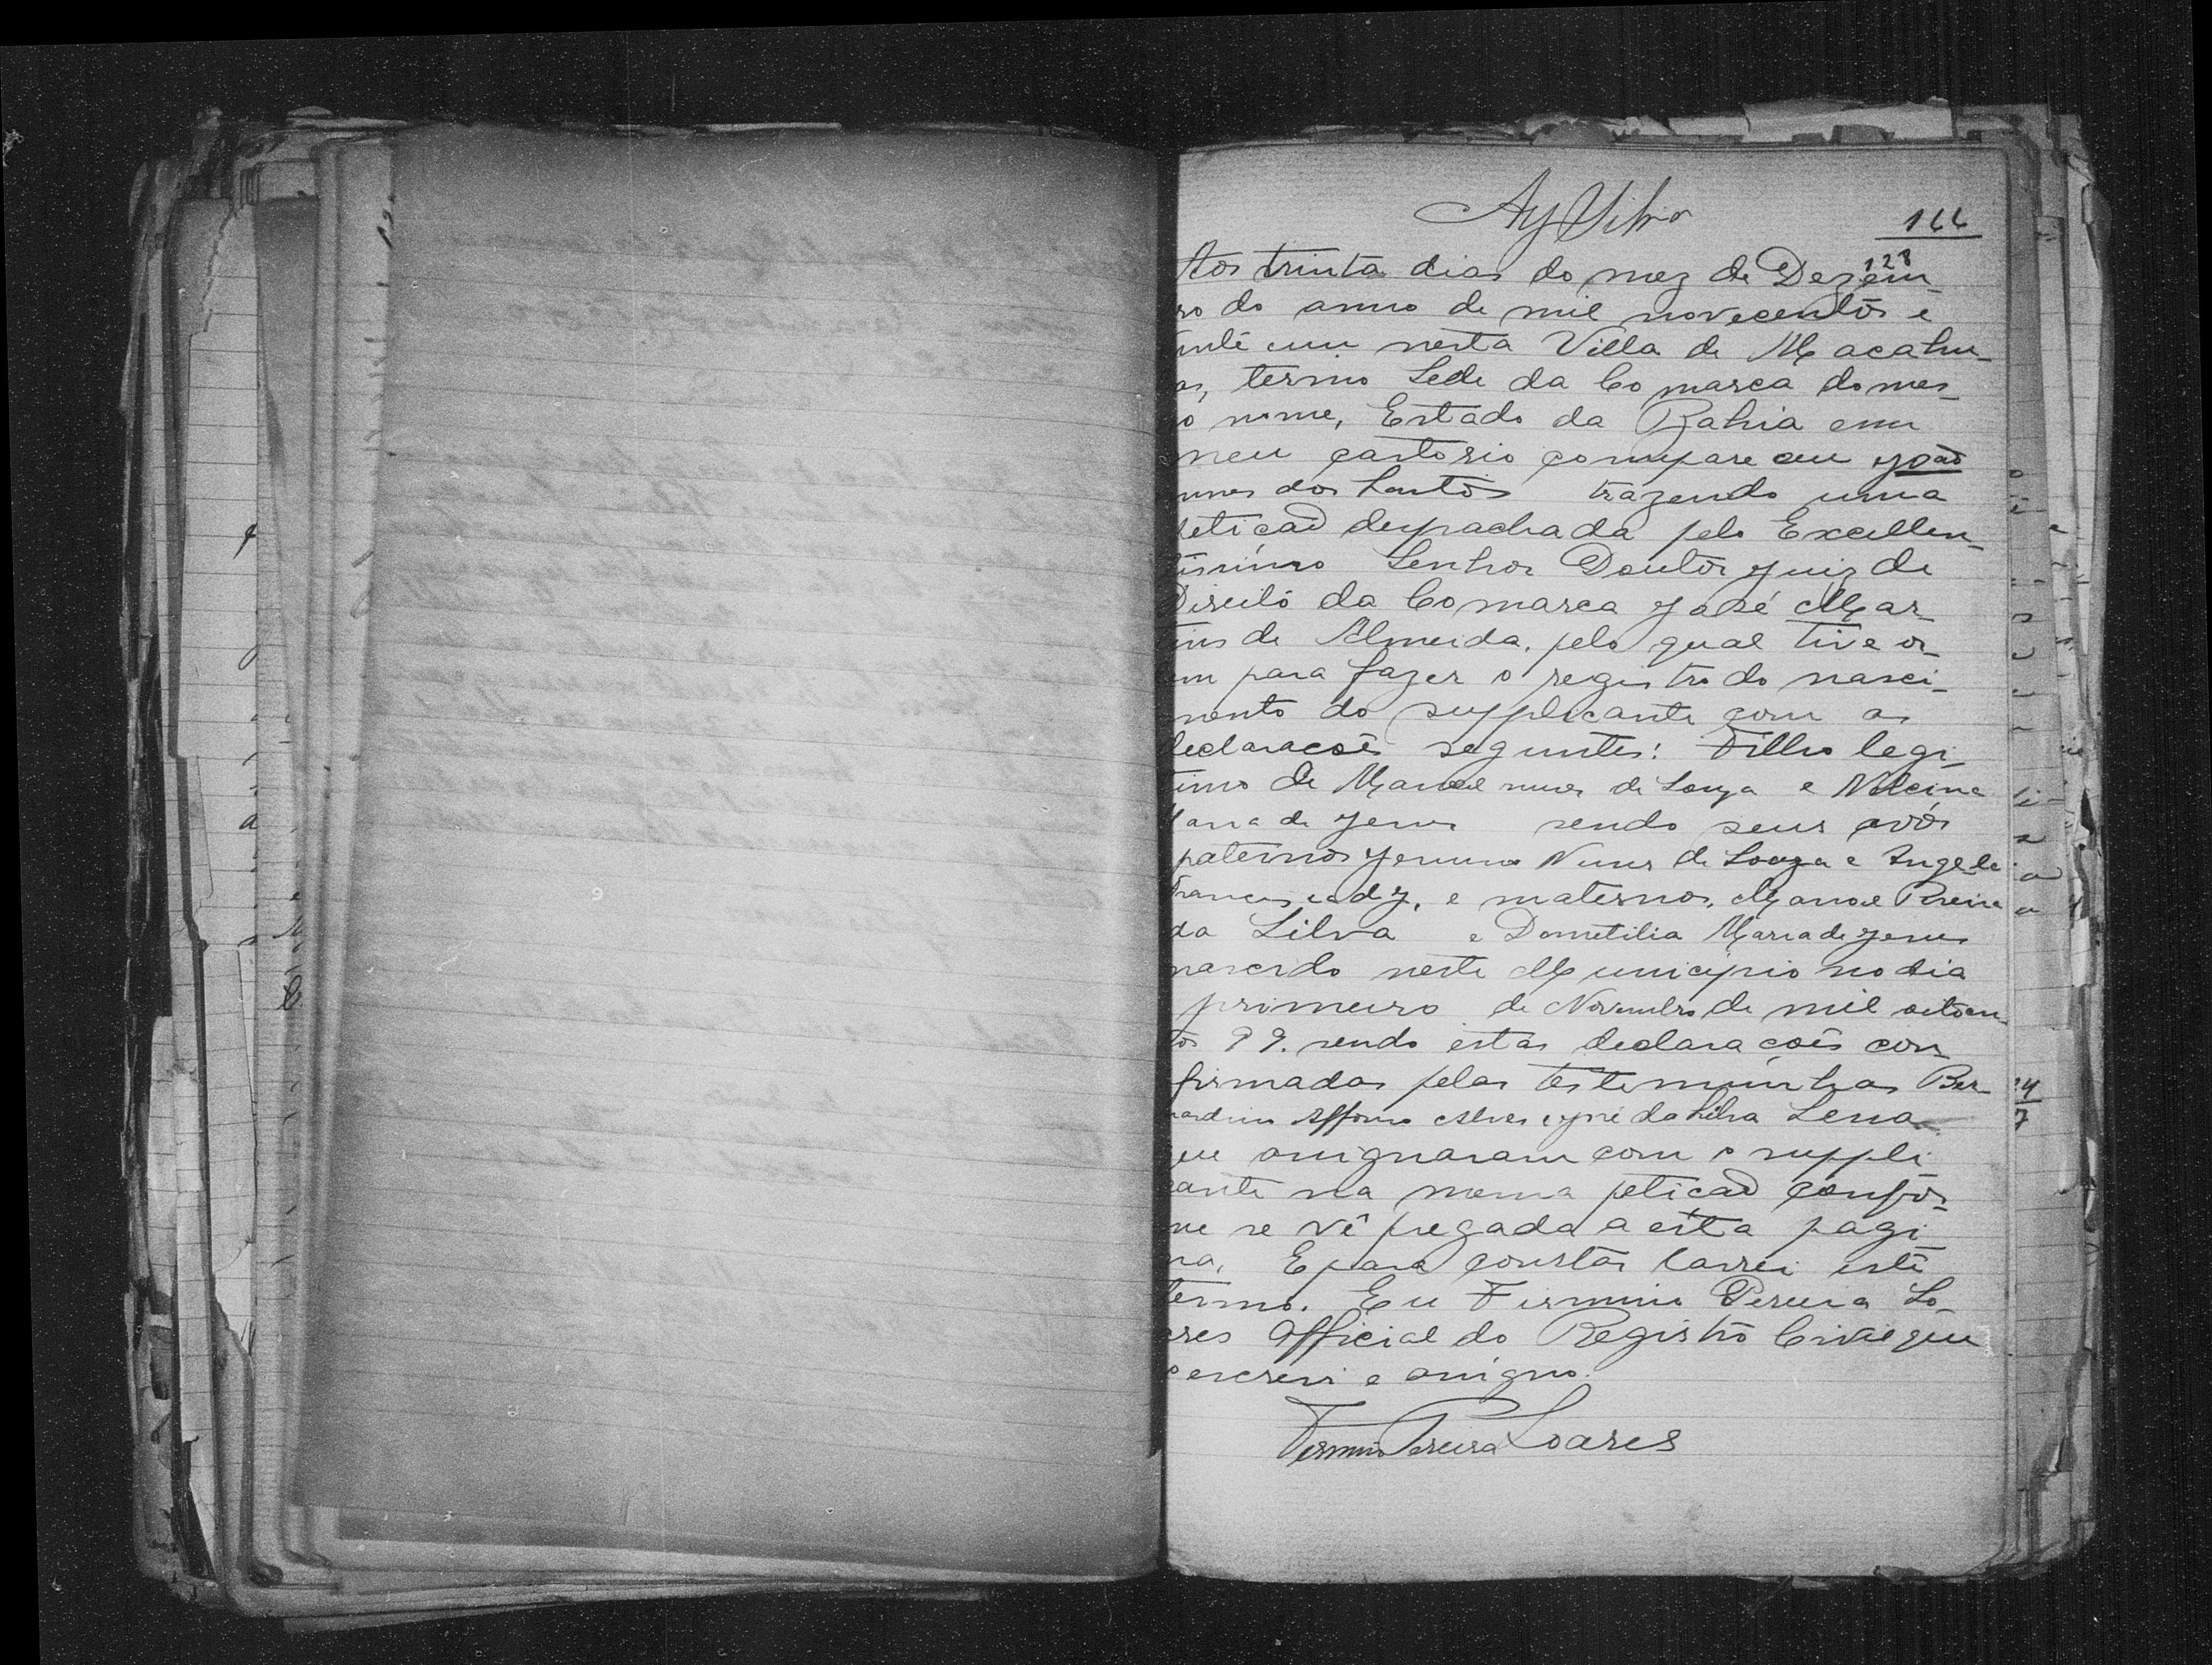 166
128
Aos trinta dias do mez de Dezem-
ro do anno de mil novecentos e
inte um nesta Villa de Macahu-
as, termo Sede da Comarca do mes-
o nome, Estado da Bahia em
meu cartorio compareceu João
unes dos Santos trazendo uma
peticaõ despachada pelo Excellen-
tissimo Senhor Doutor Juiz de
Direito da Comarca José Mar-
tins de Almeida, pelo qual tive or-
em para fazer o registro do nasci-
mento do supplicante com as
declaracoẽs seguintes: Filho legi-
timo de Manoel nunes de Souza e
Maria de Jesus sendo seus avós
paternos Nunes de Souza e Angela
Francisca de J. e maternos, Manoel Pereira
da Silva e Dometilia Maria de Jesus
nascido neste Municipio no dia
primeiro de Novembro de mil oitocen
tos 99. sendo estas declaracoẽs con
firmadas pelas testemunhas Ber-
nardino Affonso Alves e José da Silva Lessa
que assignaram com o suppli
cante na mesma peticaõ confor-
me se vê pregada a esta pagi
na, E para constar lavrei este
termo. Eu Firmino Pereira So-
ares Official do Registro Civil que
o escrevi e assigno.
Firmino Pereira Soares